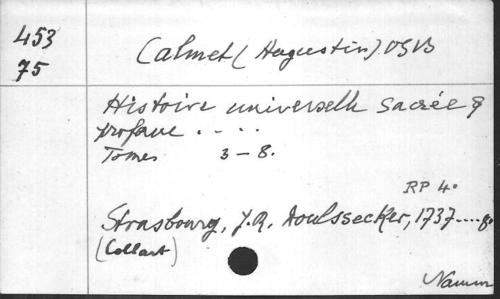 453
75
Calmet (Augustin) OSB
Histoire universelle sacrée &
profane . . . .
Tomes 3-8.
RP 4.
Strasbourg, J.R. Doulssecker, 1737....8.
(Collart)
Namur